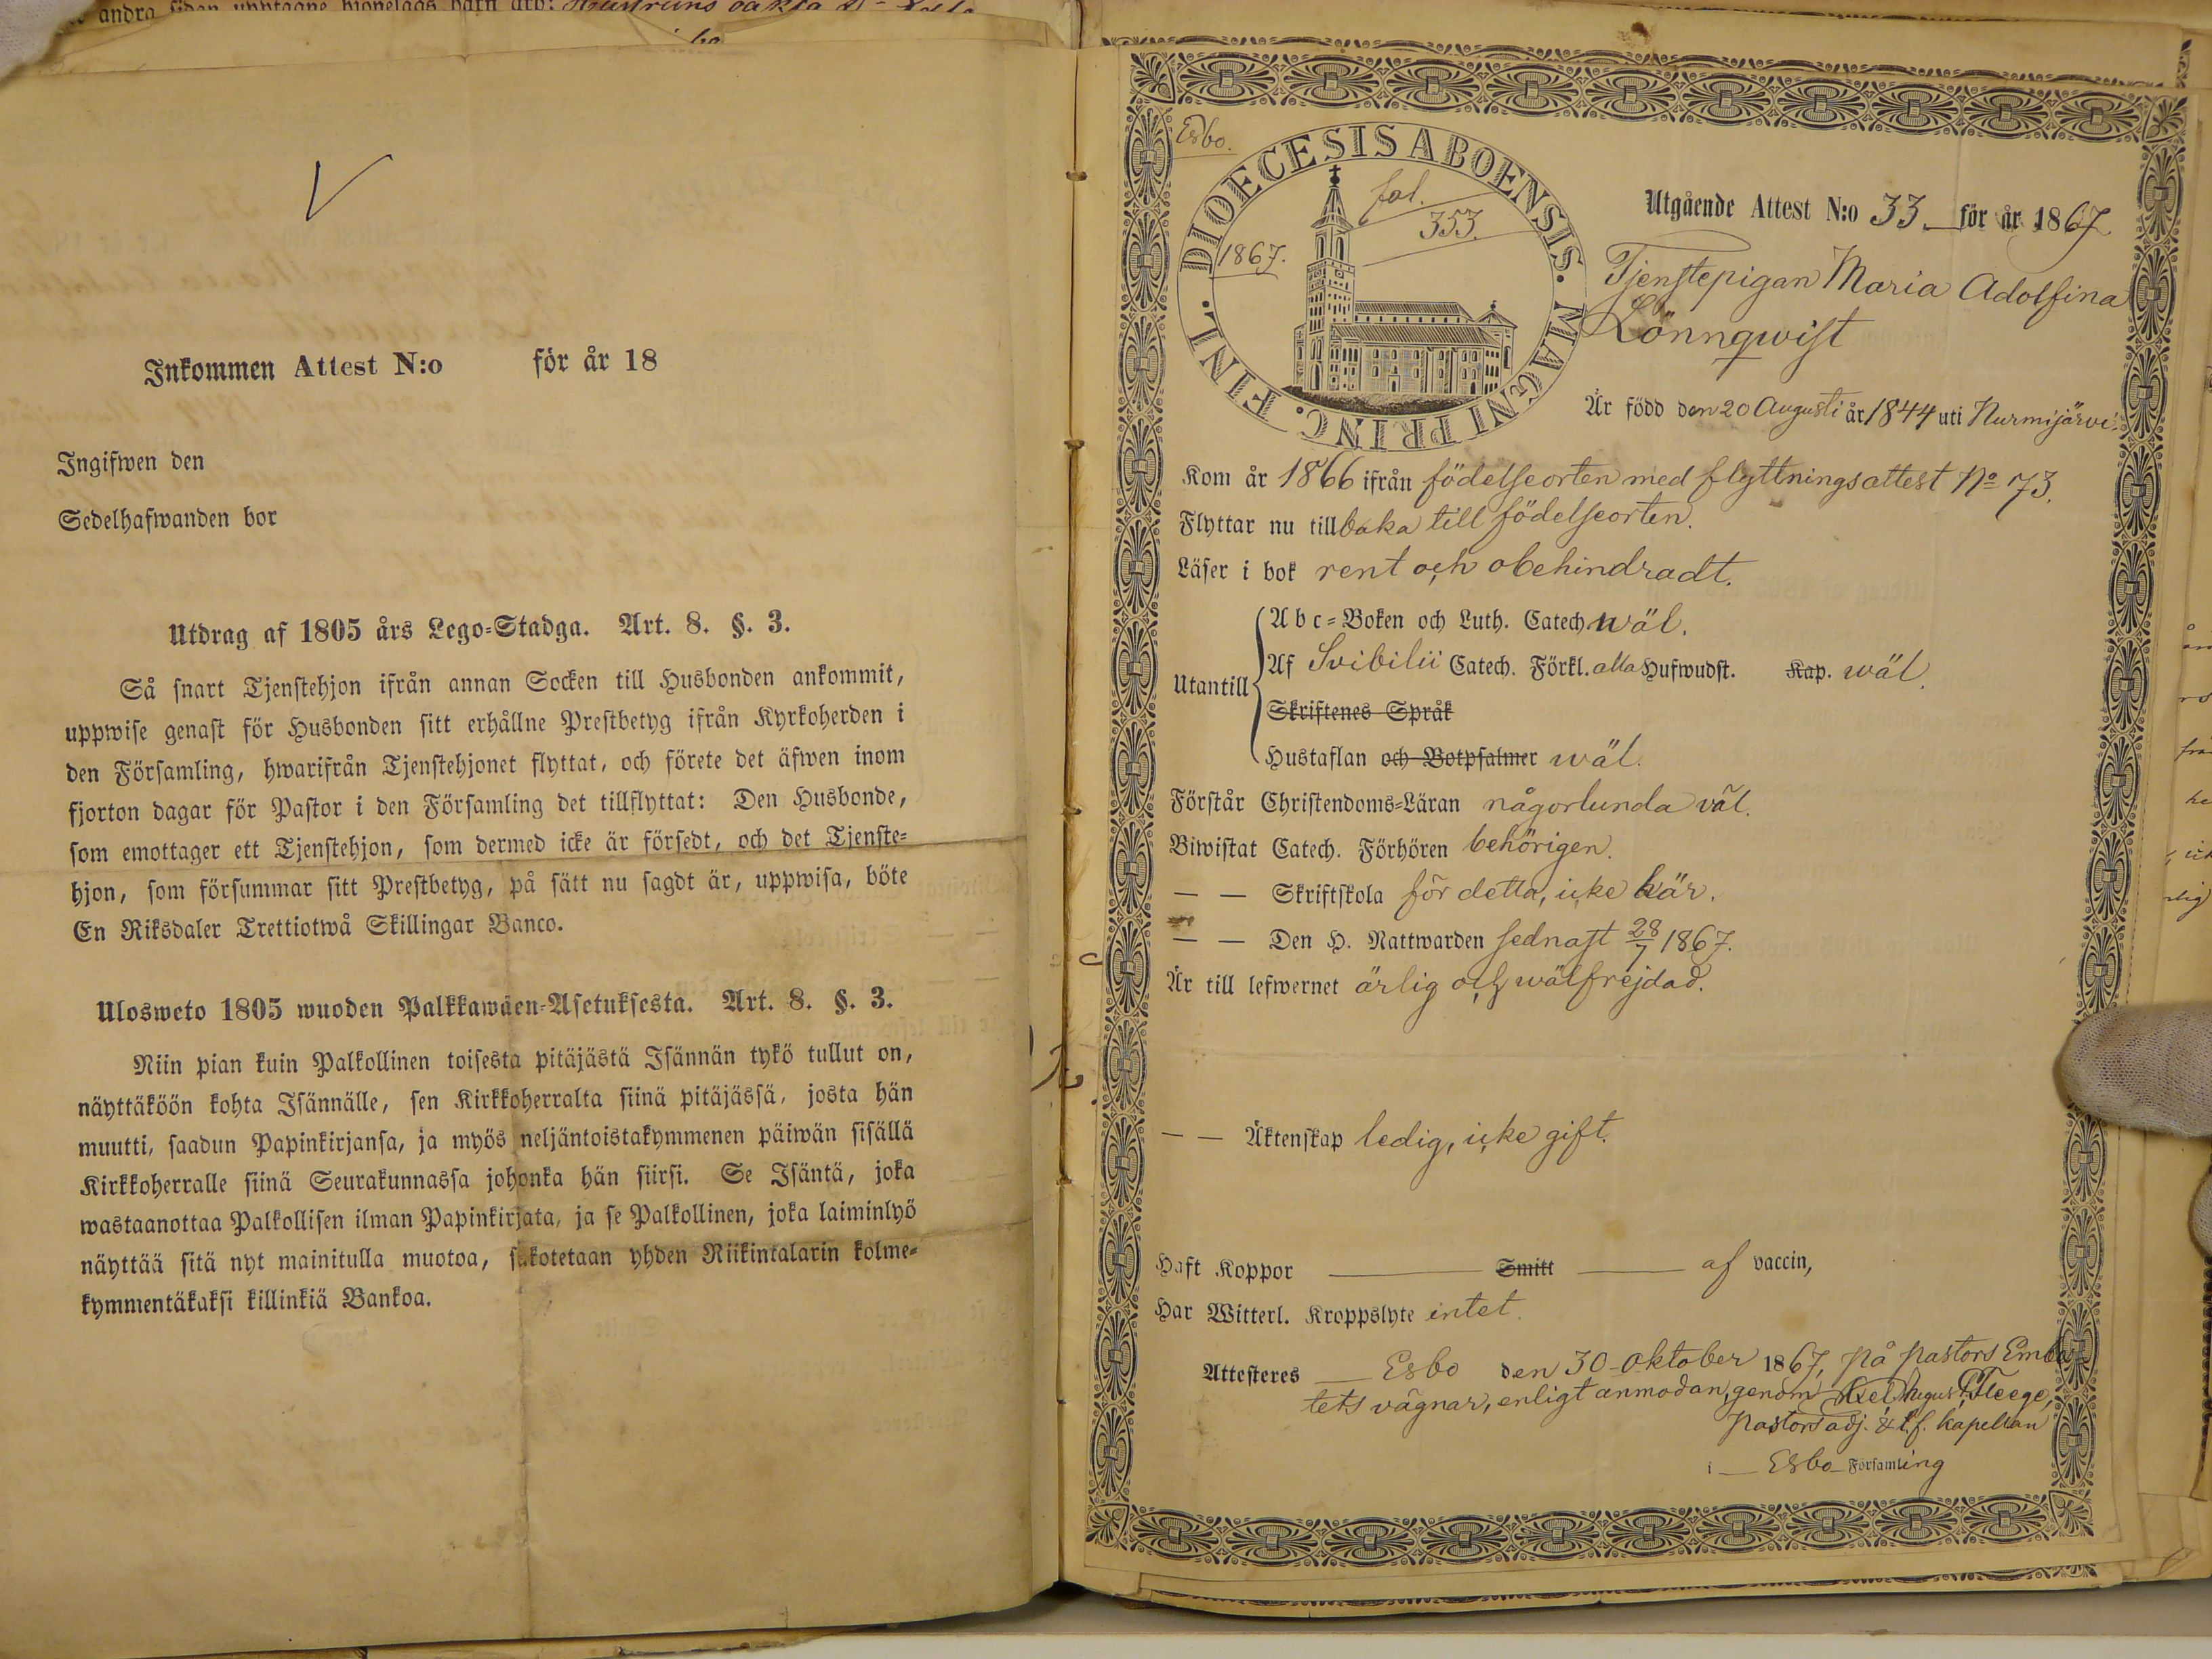 andra sidan upptagne hjonelags barn äro: Hustruns oäkta
V
Inkommen Attest N:o för år 18
Ingifwen den
Sedelhafwanden bor
Utdrag af 1805 års Lego-Stadga. Art. 8. §. 3.
Så snart Tjenstehjon ifrån annan Socken till Husbonden ankommit,
uppwise genast för Husbonden sitt erhållne Prestbetyg ifrån Kyrkoherden i
den Församling, hwarifrån Tjenstehjonet flyttat, och förete det äfwen inom
fjorton dagar för Pastor i den Församling det tillflyttat: Den Husbonde,
som emottager ett Tjenstehjon, som dermed icke är försedt, och det Tjenste-
hjon, som försummar sitt Prestbetyg, på sätt nu sagdt är, uppwisa, böte
En Riksdaler Trettiotwå Skillingar Banco.
Ulosweto 1805 wuoden Palkkawäen-Asetuksesta. Art. 8. §. 3.
Niin pian kuin Palkollinen toisesta pitäjästä Isännän tykö tullut on,
näyttäköön kohta Isännälle, sen Kirkkoherralta siinä pitäjässä, josta hän
muutti, saadun Papinkirjansa, ja myös neljäntoistakymmenen päiwän sisällä
Kirkkoherralle siinä Seurakunnassa johonka hän siirsi. Se Isäntä, joka
wastaanottaa Palkollisen ilman Papinkirjata, ja se Palkollinen, joka laiminlyö
näyttää sitä nyt mainitulla muotoa, sakotetaan yhden Riikintalarin kolme-
kymmentäkaksi killinkiä Bankoa.
Esbo.
DIOECESIS ABOENSIS. MAGNI PRINC. FINL.
fol.
353.
1867.
Utgående Attest N:o 33 för år 1867.
Tjenstepigan Maria Adolfina
Lönnqwist
Är född den 20 Augusti år 1844 uti Nurmijärvi.
Kom år 1866 ifrån födelseorten med flyttningsattest No 73.
Flyttar nu tillbaka till födelseorten.
Läser i bok rent och obehindradt.
Utantill
Abc-Boken och Luth. Catech wäl.
Af Svibilii Catech. Förkl. alla Hufwudst. Kap. wäl.
Skriftenes Språk
Hustaflan och Botpsalmer wäl.
Förstår Christendoms-Läran någorlunda väl.
Biwistat Catech. Förhören behörigen.
— — Skriftskola för detta, icke här.
— — Den H. Nattwarden sednast 28/7 1867.
Är till lefwernet ärlig och wälfrejdad.
— — Äktenskap ledig, icke gift.
Haft Koppor — Smitt — af vaccin,
Har Witterl. Kroppslyte intet.
Attesteres — Esbo den 30 Oktober 1867, på Pastors Embe-
tets vägnar, enligt anmodan, genom Axel August Fleege,
Pastors adj. & t.f. kapellan
i — Esbo Församling